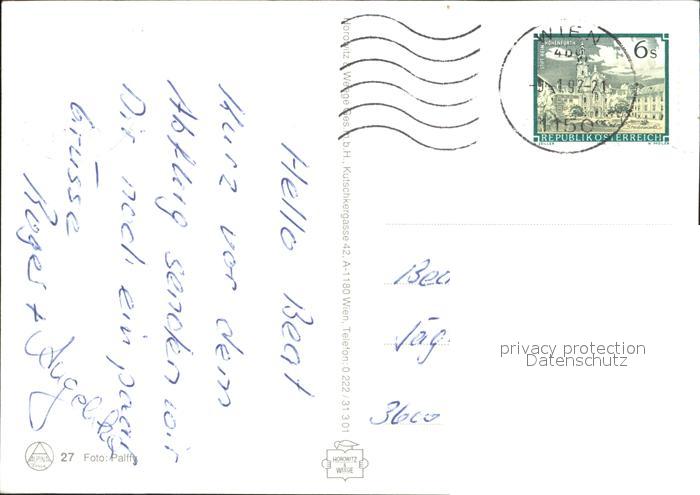 Hello Beat
Kurz vor dem
Abflug senden wir
Dir noch ein paar
Grüsse
Roger +
Horowitz & Weege Ges.m.b.H., Kutschkergasse 42, A-1180 Wien, Telefon: 0 222 / 31 3 01
WIEN
1150
6s
STIFT REIN-HOHENFURTH
REPUBLIK ÖSTERREICH
Bea
Jäg
3600
privacy protection
Datenschutz
27 Foto: Palffy
HOROWITZ
&
WEEGE